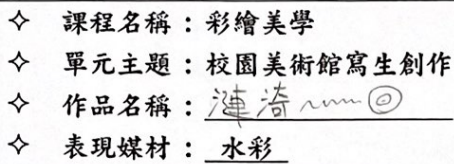 ✧ 課程名稱：彩繪美學
✧ 單元主題：校園美術館寫生創作
✧ 作品名稱：漣漪
✧ 表現媒材：水彩